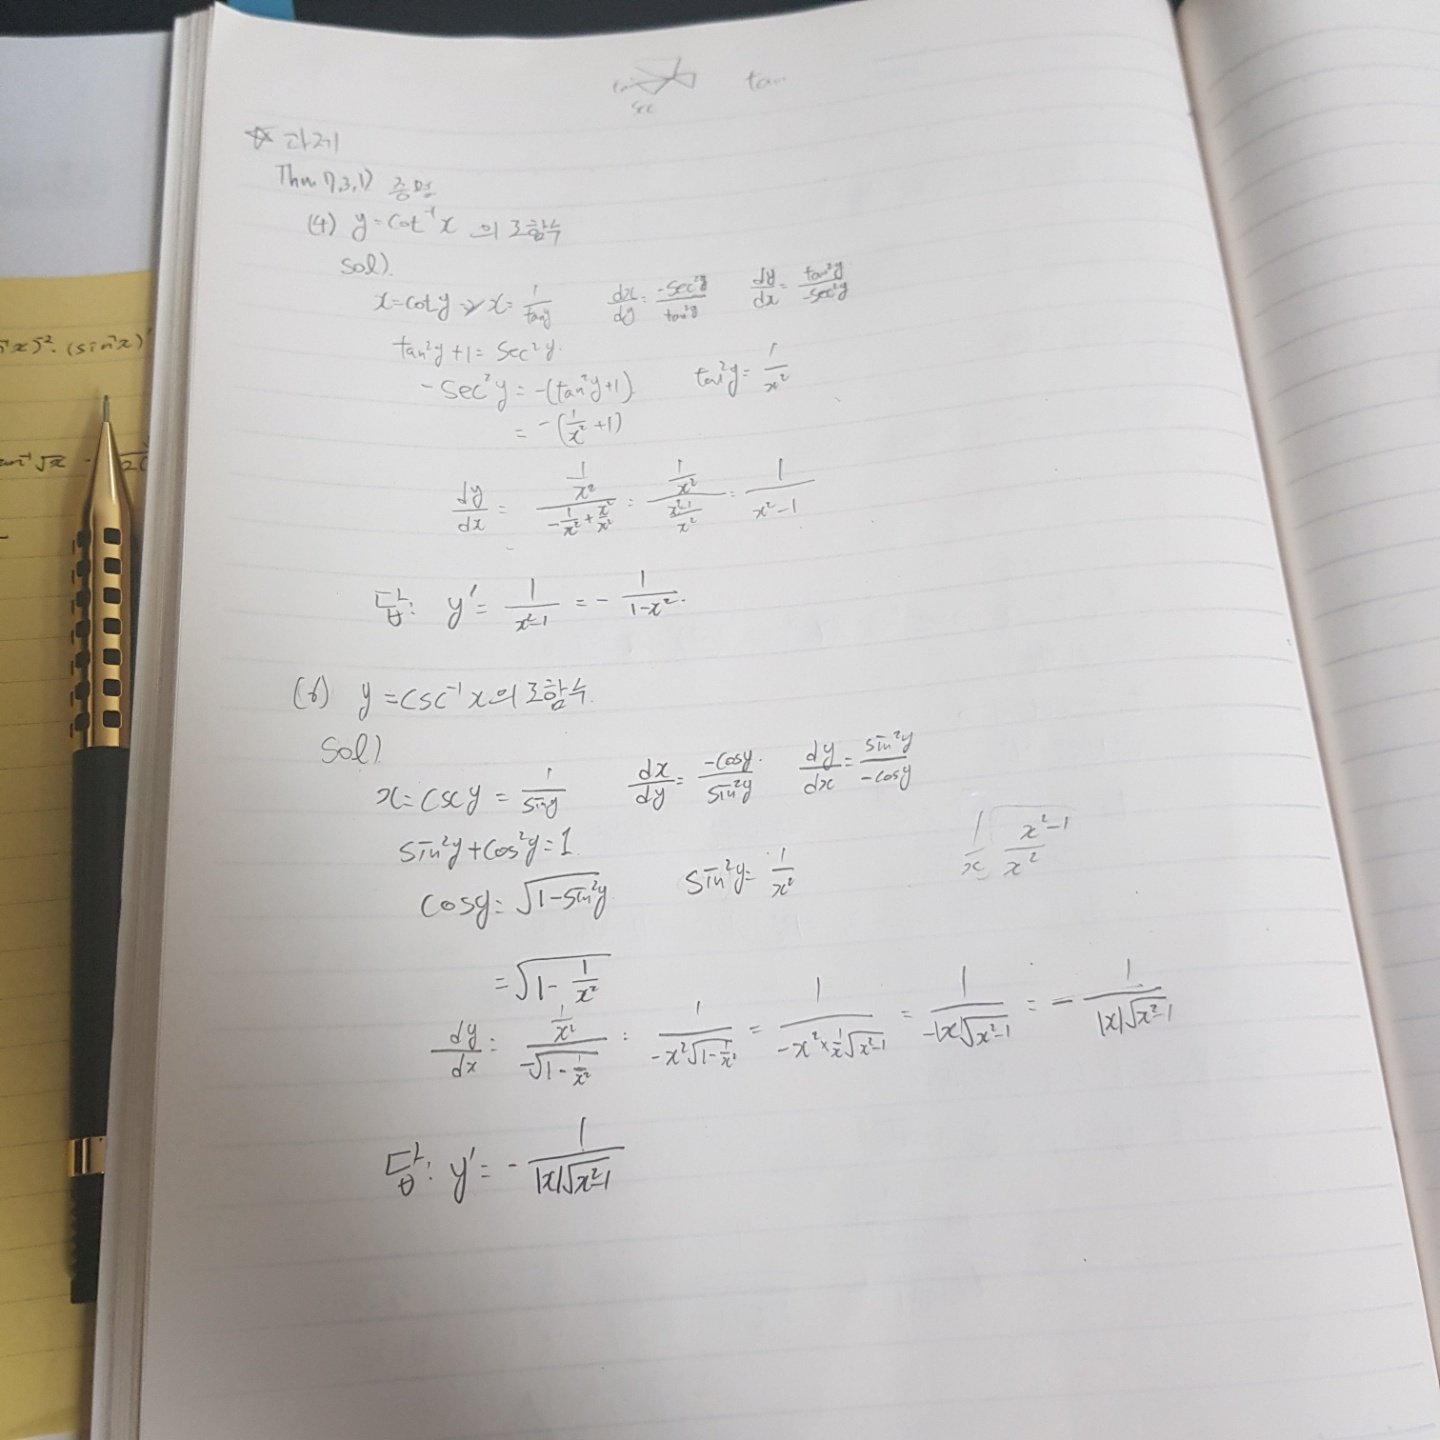 sec tan
☆ 과제
Thm 7,3,1) 증명
(4) y = cot⁻¹x 의 도함수
sol).
x = cot y → x = 1/tan y   dx/dy = -sec²y/tan²y   dy/dx = tan²y/-sec²y
tan²y + 1 = sec²y.
-sec²y = -(tan²y+1)   tan²y = 1/x²
= -(1/x² + 1)
dy/dx = (1/x²)/(-1/x² + x²/x²) = (1/x²)/((x²-1)/x²) = 1/(x²-1)
답: y' = 1/(x²-1) = - 1/(1-x²).
(6) y = csc⁻¹x의 도함수.
sol).
x = csc y = 1/sin y   dx/dy = -cos y/sin²y   dy/dx = sin²y/-cos y
sin²y + cos²y = 1   1/x (x²-1)/x²
cos y = √(1-sin²y)   sin²y = 1/x²
= √(1 - 1/x²)
dy/dx = (1/x²)/(-√(1 - 1/x²)) = 1/(-x²√(1 - 1/x²)) = 1/(-x² × 1/x √(x²-1)) = 1/(-|x|√(x²-1)) = - 1/(|x|√(x²-1))
답: y' = - 1/(|x|√(x²-1))
x)⁻². (sin⁻¹x)'
tan⁻¹√x